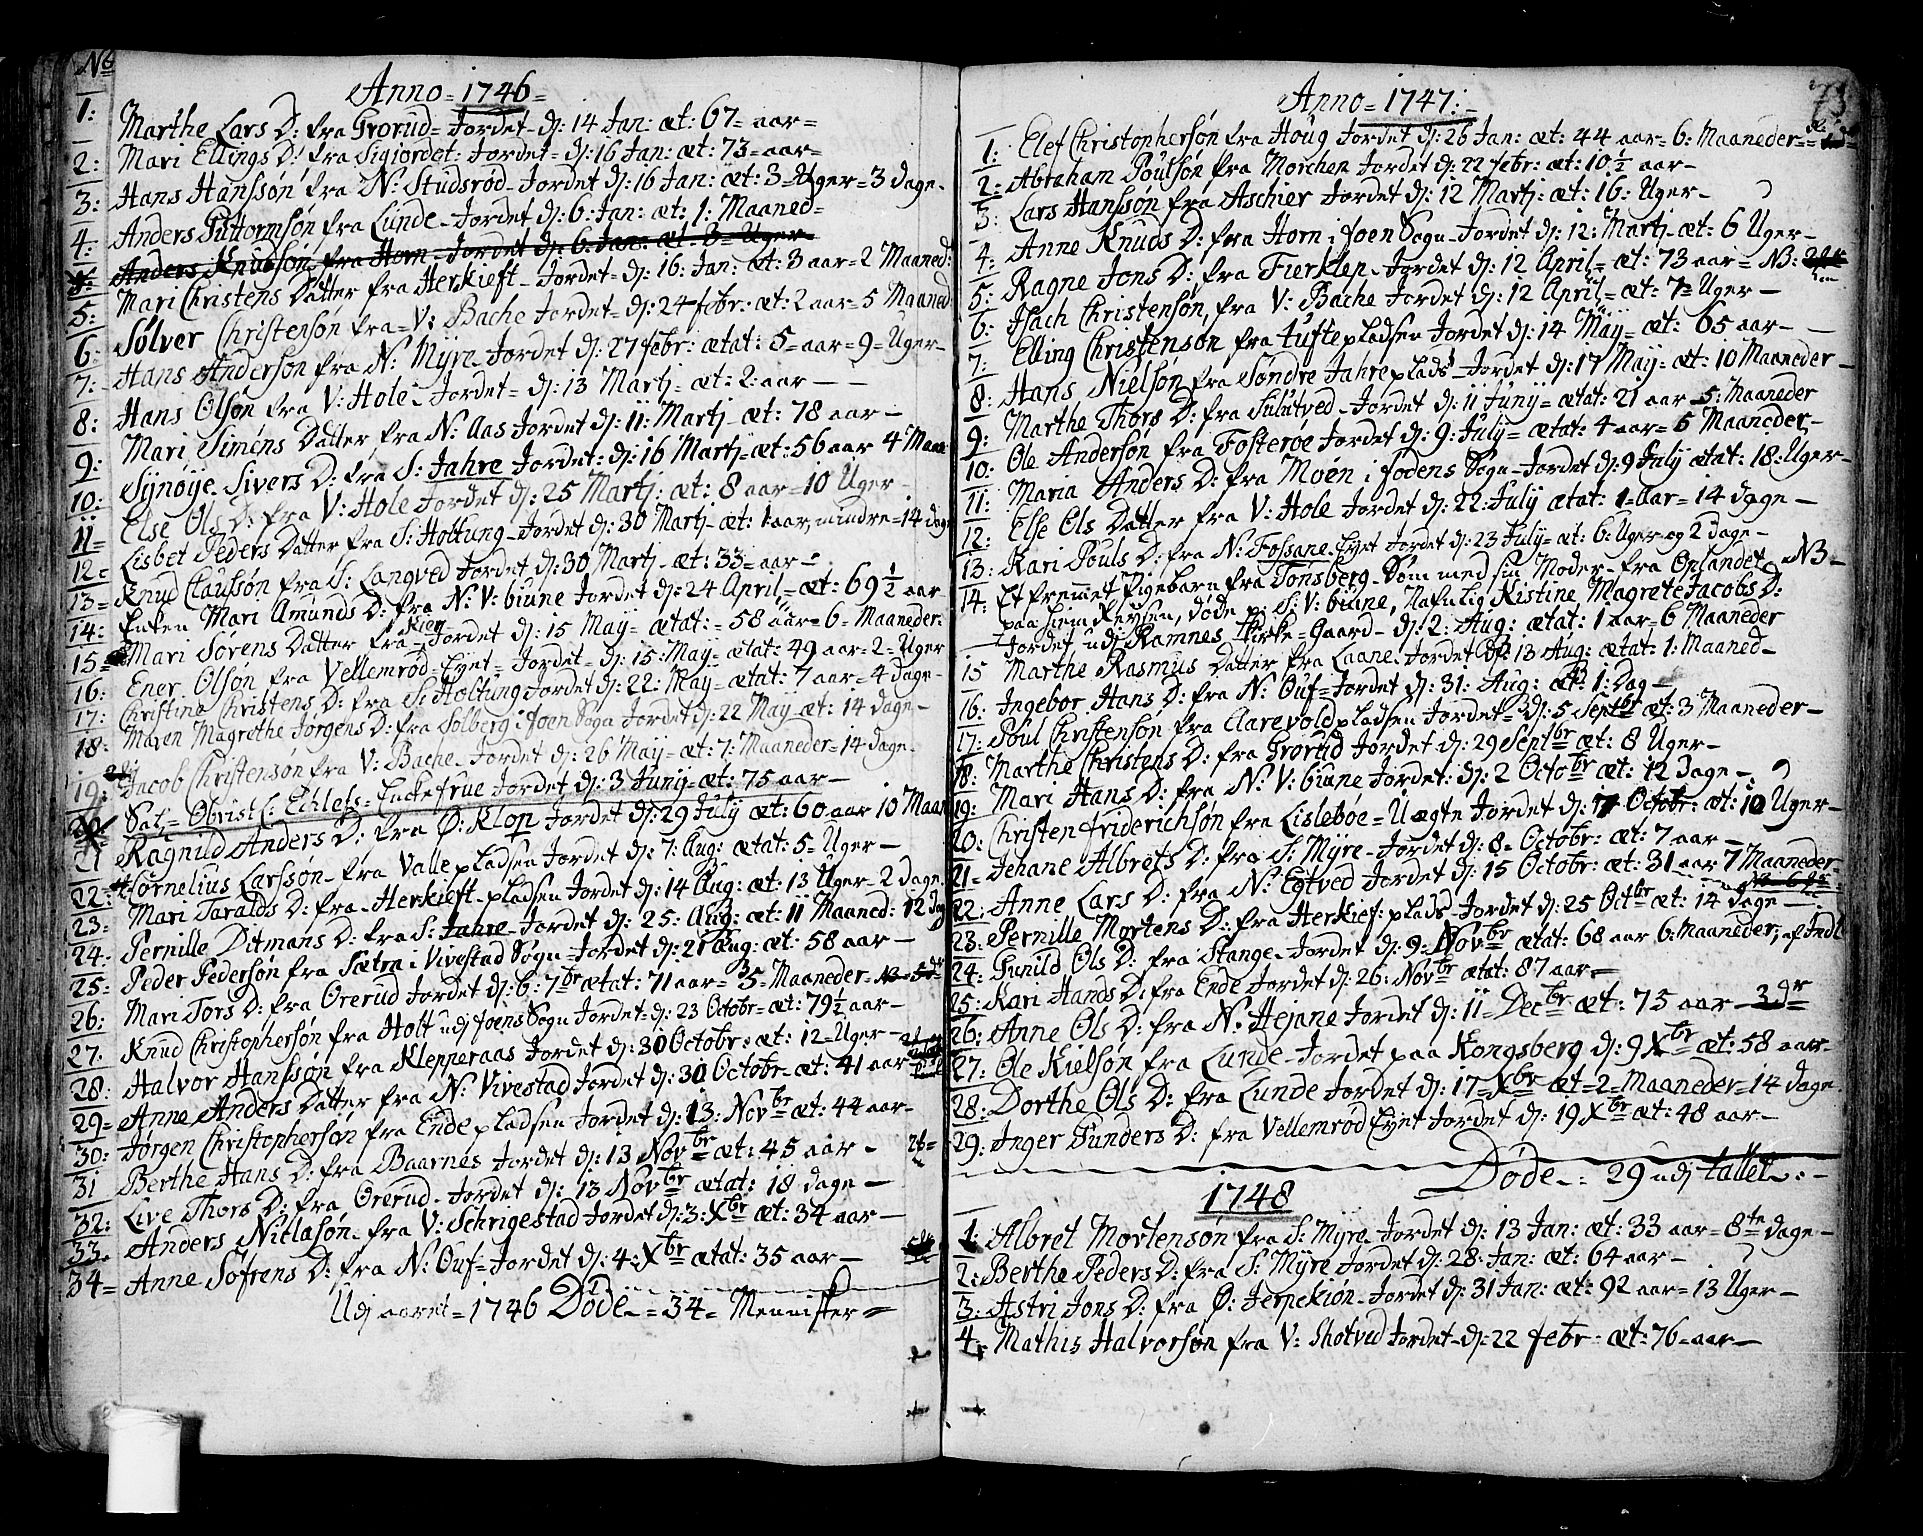 No
Anno = 1746 =
1: Marthe Lars D: fra Grorud = Jordet d: 14 Jan: æt: 67 = aar =
2: Mari Ellings D: fra Sigjordet = Jordet = d: 16 Jan: æt: 73 = aar =
3: Hans Hanssøn fra N: Studsrød = Jordet d: 16 Jan: æt: 3 = Uger = 3 dage -
4: Anders Guttormsøn fra Lunde - Jordet d: 6: Jan: æt: 1: Maaned =
Anders Knudsøn fra Horn - Jordet d: 6: Jan: æt: 3 = Uger -
5: Mari Christens Datter fra Herkieft - Jordet = d: 16: Jan: æt: 3 aar = 2 Maaned:
6: Sølver Christensøn fra = V: Bache Jordet = d: 24 febr: æt: 2 aar = 5 Maaned
7: Hans Andersøn fra N: Mÿre - Jordet d: 27 febr: ætat: 5 = aar = 9 = Uger -
8: Hans Olsøn fra V: Hole - Jordet = d: 13 Martj = æt: 2: aar - -
9: Mari Simens Datter fra N: Aas Jordet d: 11: Martj - æt: 78 aar -
10: Sÿnøÿe Sivers D: fra S: Jahre Jordet: d: 16 Martj = æt: 56 aar 4 Maan
11 = Else Ols D: fra V: Hole Jordet d: 25 Martj: æt: 8 aar = 10 Uger -
12 = Lisbet Peders Datter fra S: Holtung - Jordet d: 30 Martj - æt: 1 aar mindre = 14 dage
13 = Knud Claussøn fra S: Langved Jordet d: 30 Martj - æt: 33 = aar -
14: Enken Mari Amunds D: fra N: V: biune Jordet d: 24 April = æt: 69 ½ aar
15 Mari Sørens Datter fra Kier Jordet d: 15 Maÿ = ætat: - 58 aar = 6 - Maaneder:
16: Ener Olsøn fra Vellemrød - Eÿet = Jordet = d: 15: Maÿ = ætat: 49 aar = 2 = Uger
17: Christine Christens D: fra S: Holtung Jordet d: 22: Maÿ - ætat: 7 aar = 4 dage -
18: Maren Magrethe Jørgens D: fra Solberg i foen Sogn Jordet d: 22 Maÿ - æt: 14 dage -
19: Jacob Christensøn fra V: Bache - Jordet d: 26 Maÿ = æt: 7: Maaneder = 14 dage -
Sal: = Obrist L: Echlefs = Enckefrue Jordet d: 3 Junÿ = æt: 75 aar -
21 Ragnild Anders D: fra Ø: Klop Jordet d: 29 Julÿ æt: 60 aar 10 Maan
22: Cornelius Larssøn - fra Valle pladsen Jordet d: 7: Aug: ætat: 5 = Uger -
23: Mari Taralds D: fra - Herkieft - pladsen Jordet d: 14 Aug: æt: 13 Uger - 2 dage
24: Pernille Ditmans D: fra S: Jahre - Jordet d: 25: Aug: æt: 11 Maaned: 12 dag
25: Peder Pedersøn fra Sætra i Vivestad Sogn = Jordet d: 21 Aug: æt: 58 aar -
26: Mari Tors D: fra Orerud Jordet d: 6: 7br ætat: 71 aar = 5 - Maaneder -
27. Knud Christophersøn fra Holt udj foens Sogn Jordet: d: 23 Octobr = æt: 79 ½ aar -
28: Halvor Hanssøn fra Klepperaas Jordet d: 30 Octobr: æt: 12 - Uger -
29 = Anne Anders Datter fra N: Vivestad Jordet d: 30 Octobr - æt: 41 aar
30: Jørgen Christophersøn fra Ende pladsen Jordet d: 13: Novbr æt: 44 aar -
31 Berthe Hans D: fra Baarnes Jordet d: 13 Novbr æt: 45 aar -
32: Live Thors D: fra Orerud - Jordet d: 13 Novbr ætat: 18 dage -
33. Anders Niclasøn - fra V: Schrigestad Jordet d: 3: Xbr æt: 34 aar -
34 = Anne Sofrens D: fra N: Ouf = Jordet d: 4: Xbr ætat: 35 aar -
Udj aaret = 1746 Døde - = 34 = Mennisker =
73
Anno = 1747: -
1: Elef Christophersøn fra Houg Jordet d: 26 Jan: æt: 44 aar = 6: Maaneder =
2: Abraham Poulsøn fra Morchen Jordet d: 22 febr: æt: 10 ½ aar -
3: Lars Hanssøn fra Aschier Jordet d: 12 Martj: æt: 16: Uger -
4: Anne Knuds D: fra Horn i foen Sogn - Jordet d: 12: Martj - æt: 6 Uger -
5: Ragne Jons D: fra Fierklep - Jordet d: 12 April = æt: 73 aar = NB:
6: Isach Christensøn, fra V: Bache Jordet d: 12 April = æt: 7 = Uger -
7: Elling Christensøn fra tufte pladsen Jordet d: 14 Maÿ = æt: 65 aar -
8: Hans Nielsøn fra Søndre Jahre plads - Jordet d: 17 Maÿ - æt: 10 Maaneder -
9: Marthe Thors D: fra Sulutved - Jordet d: 11 Junÿ = ætat: 21 aar 5: Maaneder
10: Ole Andersøn fra Fosterøe Jordet d: 9: Julÿ = ætat: 4 aar = 6 Maaneder -
11: Maria Anders D: fra Moen i fodens Sogn - Jordet d: 9 Julÿ ætat: 18: Uger -
12: Else Ols Datter fra V: Hole Jordet d: 22: Julÿ ætat: 1 = aar = 14 dage -
13: Kari Pouls D: fra N: Fossane Eÿet Jordet d: 23 Julÿ = æt: 6: Uger og 2 dage -
14: Et fremmet Pigebarn fra Tønsberg - Som med sin Moder - fra Oplandet - NB -
paa hiem Reÿsen, døde p: S: V: biüne, Nafnlig Kistine Magrete Jacobs D:
Jordet udj Ramnes Kirke = Gaard - d: 2: Aug: ætat: 1 aar = 6 Maaneder
15 Marthe Rasmus Datter fra Laane - Jordet d: 13 Aug: ætat: 1: Maaned -
16: Ingebor Hans D: fra N: Ouf = Jordet d: 31: Aug: æt: 1: Dag -
17: Poul Christensøn fra Aarevold pladsen Jordet = d: 5 Septbr æt: 3 Maaneder -
18: Marthe Christens D: fra Grorud Jordet d: 29 Septbr æt: 8 Uger -
19: Mari Hans D: fra N: V: biune Jordet: d: 2 Octobr æt: 12 dage -
20: Christen friderichsøn fra Lislebøe = Uægte Jordet d: 17 Octobr: æt: 10 Uger -
21 = Jehane Albrets D: fra S: Mÿre - Jordet d: 8 - Octobr: æt: 7 aar -
22: Anne Lars D: fra N: Egtved Jordet d: 15 Octobr: æt: 31 aar 7 Maaneder -
23: Pernille Mortens D: fra Herkief: plads - Jordet d: 25 Octbr æt: 14 dage -
24: Gunild Ols D: fra Stange - Jordet d: 9: Novbr ætat: 68 aar 6: Maaneder, af Indl
25: Kari Hands D: fra Ende Jordet d: 26: Novbr ætat: 87 aar -
26: Anne Ols D: fra N: Hejane Jordet d: 11 = Decbr æt: 75 aar - 3 dr
27: Ole Kielsøn fra Lunde - Jordet paa Kongsberg d: 9 Xbr æt: 58 aar -
28: Dorthe Ols D: fra Lunde Jordet d: 17 - Xbr æt = 2 = Maaneder = 14 dage
29: Inger Gunders D: fra Vellemrød Eÿet Jordet d: 19 Xbr æt: 48 aar -
Døde - : 29 udj tallet - : -
1748
1: Albret Mortensøn fra S: Mÿre - Jordet d: 13 Jan: æt: 33 aar = 8te dage -
2: Berthe Peders D: fra S: Mÿre Jordet d: 28: Jan: æt: 64 aar -
3: Astri Jons D: fra Ø: Jerpekiøn - Jordet d: 31 Jan: æt: 92 aar = 13 Uger -
4: Mathis Halvorsøn fra V: Skotved Jordet d: 22 febr - æt: 76 = aar -